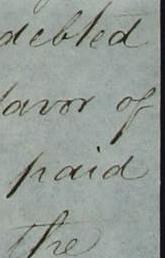 debted
favor of
paid
the